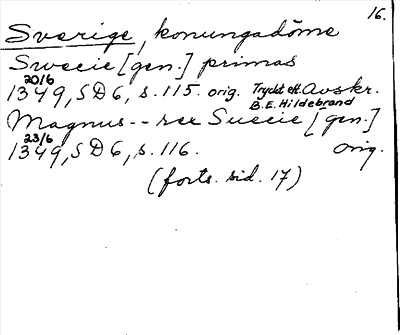 16.
Sverige, konungadöme
Swecie [gen.] primas
20/6
1349, SD6, s. 115. orig. Tryckt eft. Avskr.
B.E. Hildebrand
Magnus -- rex Suecie [gen.]
23/6
1349, SD6, s. 116. orig.
(forts. sid. 17)